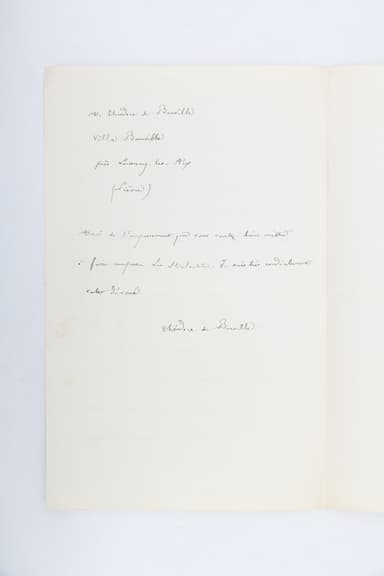 M. Théodore de Banville
Villa Banville
près Lucenay-les-Aix
(Nièvre)
Merci de l'empressement que vous voulez bien mettre
à faire composer Les Je suis très cordialement
votre dévoué
Théodore de Banville